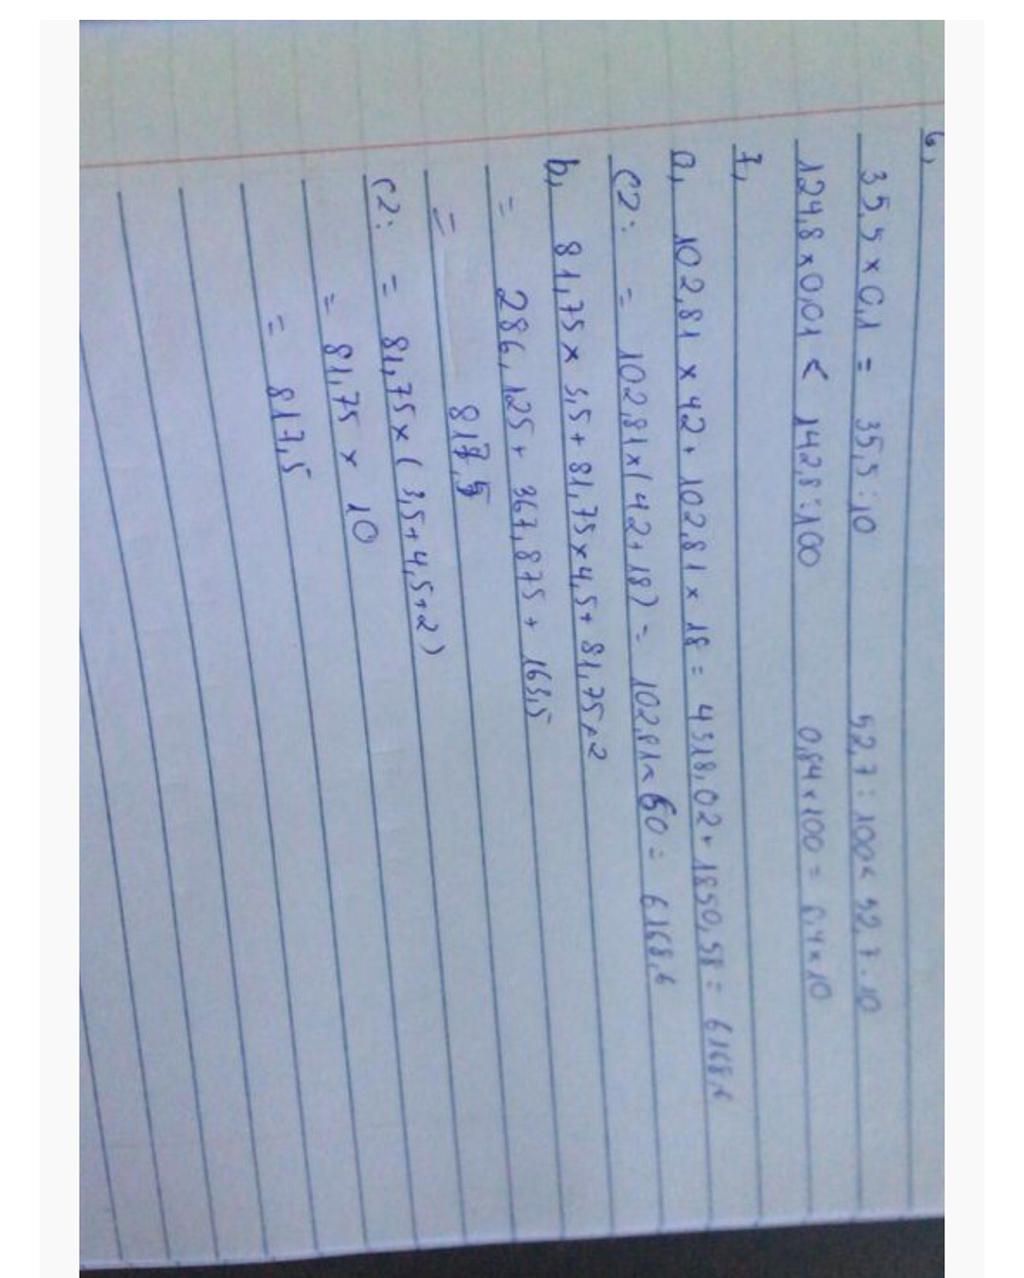 6,
35,5 × 0,1 = 35,5 : 10 52,7 : 100 < 52,7 . 10
124,8 × 0,01 < 142,8 : 100 0,84 × 100 = 8,4 × 10
7,
a, 102,81 × 42 + 102,81 × 18 = 4318,02 + 1850,58 = 6168,6
C2: = 102,81 × (42 + 18) = 102,81 × 60 = 6168,6
b, 81,75 × 3,5 + 81,75 × 4,5 + 81,75 × 2
= 286,125 + 367,875 + 163,5
= 817,5
C2: = 81,75 × (3,5 + 4,5 + 2)
= 81,75 × 10
= 817,5